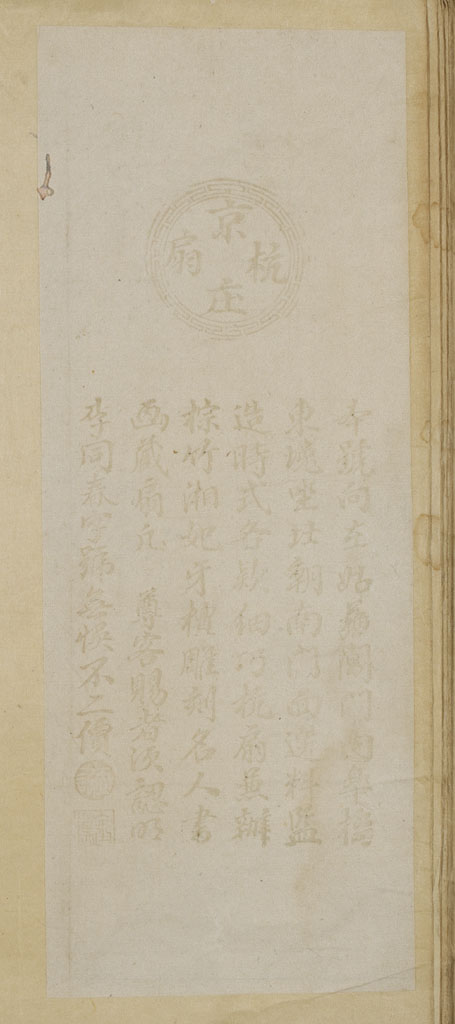 京杭扇庄
本號向在姑蘇閶門內皋橋
東堍坐北朝南門面選料監
造時式各款細巧杭扇兼辦
棕竹湘妃牙檀雕刻名人書
画藏扇凡 尊客賜者須認明
李同春字號無悮不二價